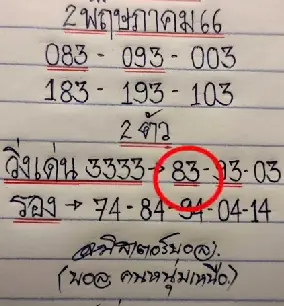 2 พฤษภาคม 66
083 - 093 - 003
183 - 193 - 103
2 ตัว
วิ่งเด่น 3333 → 83 - 93 - 03
รอง → 74 - 84 - 94 - 04 - 14
(บอล คนหนุ่มเหนือ.)